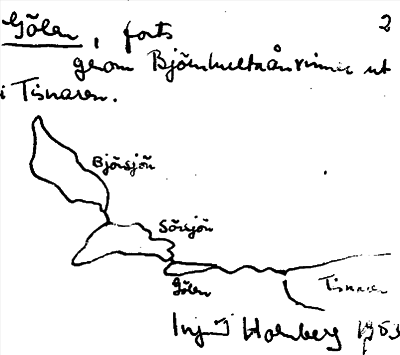 Gölen, forts 2
genom Björnhultaån rinner ut
i Tisnaren.
Björsjön
Sörsjön
Gölen
Tisnaren
Ingrid Holmberg